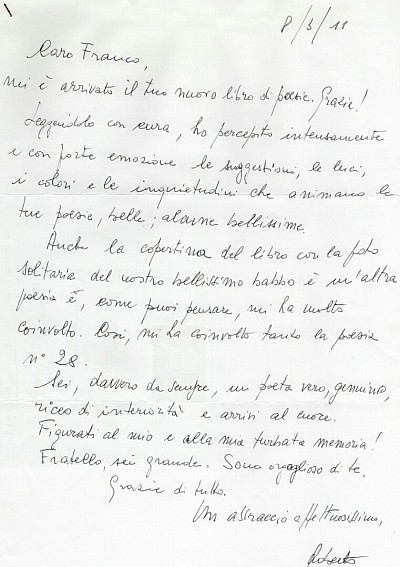 8/3/11
Caro Franco,
mi è arrivato il tuo nuovo libro di poesie. Grazie!
Leggendolo con cura, ho percepito intensamente
e con forte emozione le suggestioni, le luci,
i colori e le inquietudini che animano le
tue poesie, belle; alcune bellissime.
Anche la copertina del libro con la foto
solitaria del nostro bellissimo babbo è un'altra
poesia è, come puoi pensare, mi ha molto
coinvolto. Così, mi ha coinvolto tanto la poesia
n° 28.
Sei, davvero da sempre, un poeta vero, genuino,
ricco di interiorità e arrivi al cuore.
Figurati al mio e alla mia turbata memoria!
Fratello, sei grande. Sono orgoglioso di te.
Grazie di tutto.
Un abbraccio affettuosissimo,
Roberto